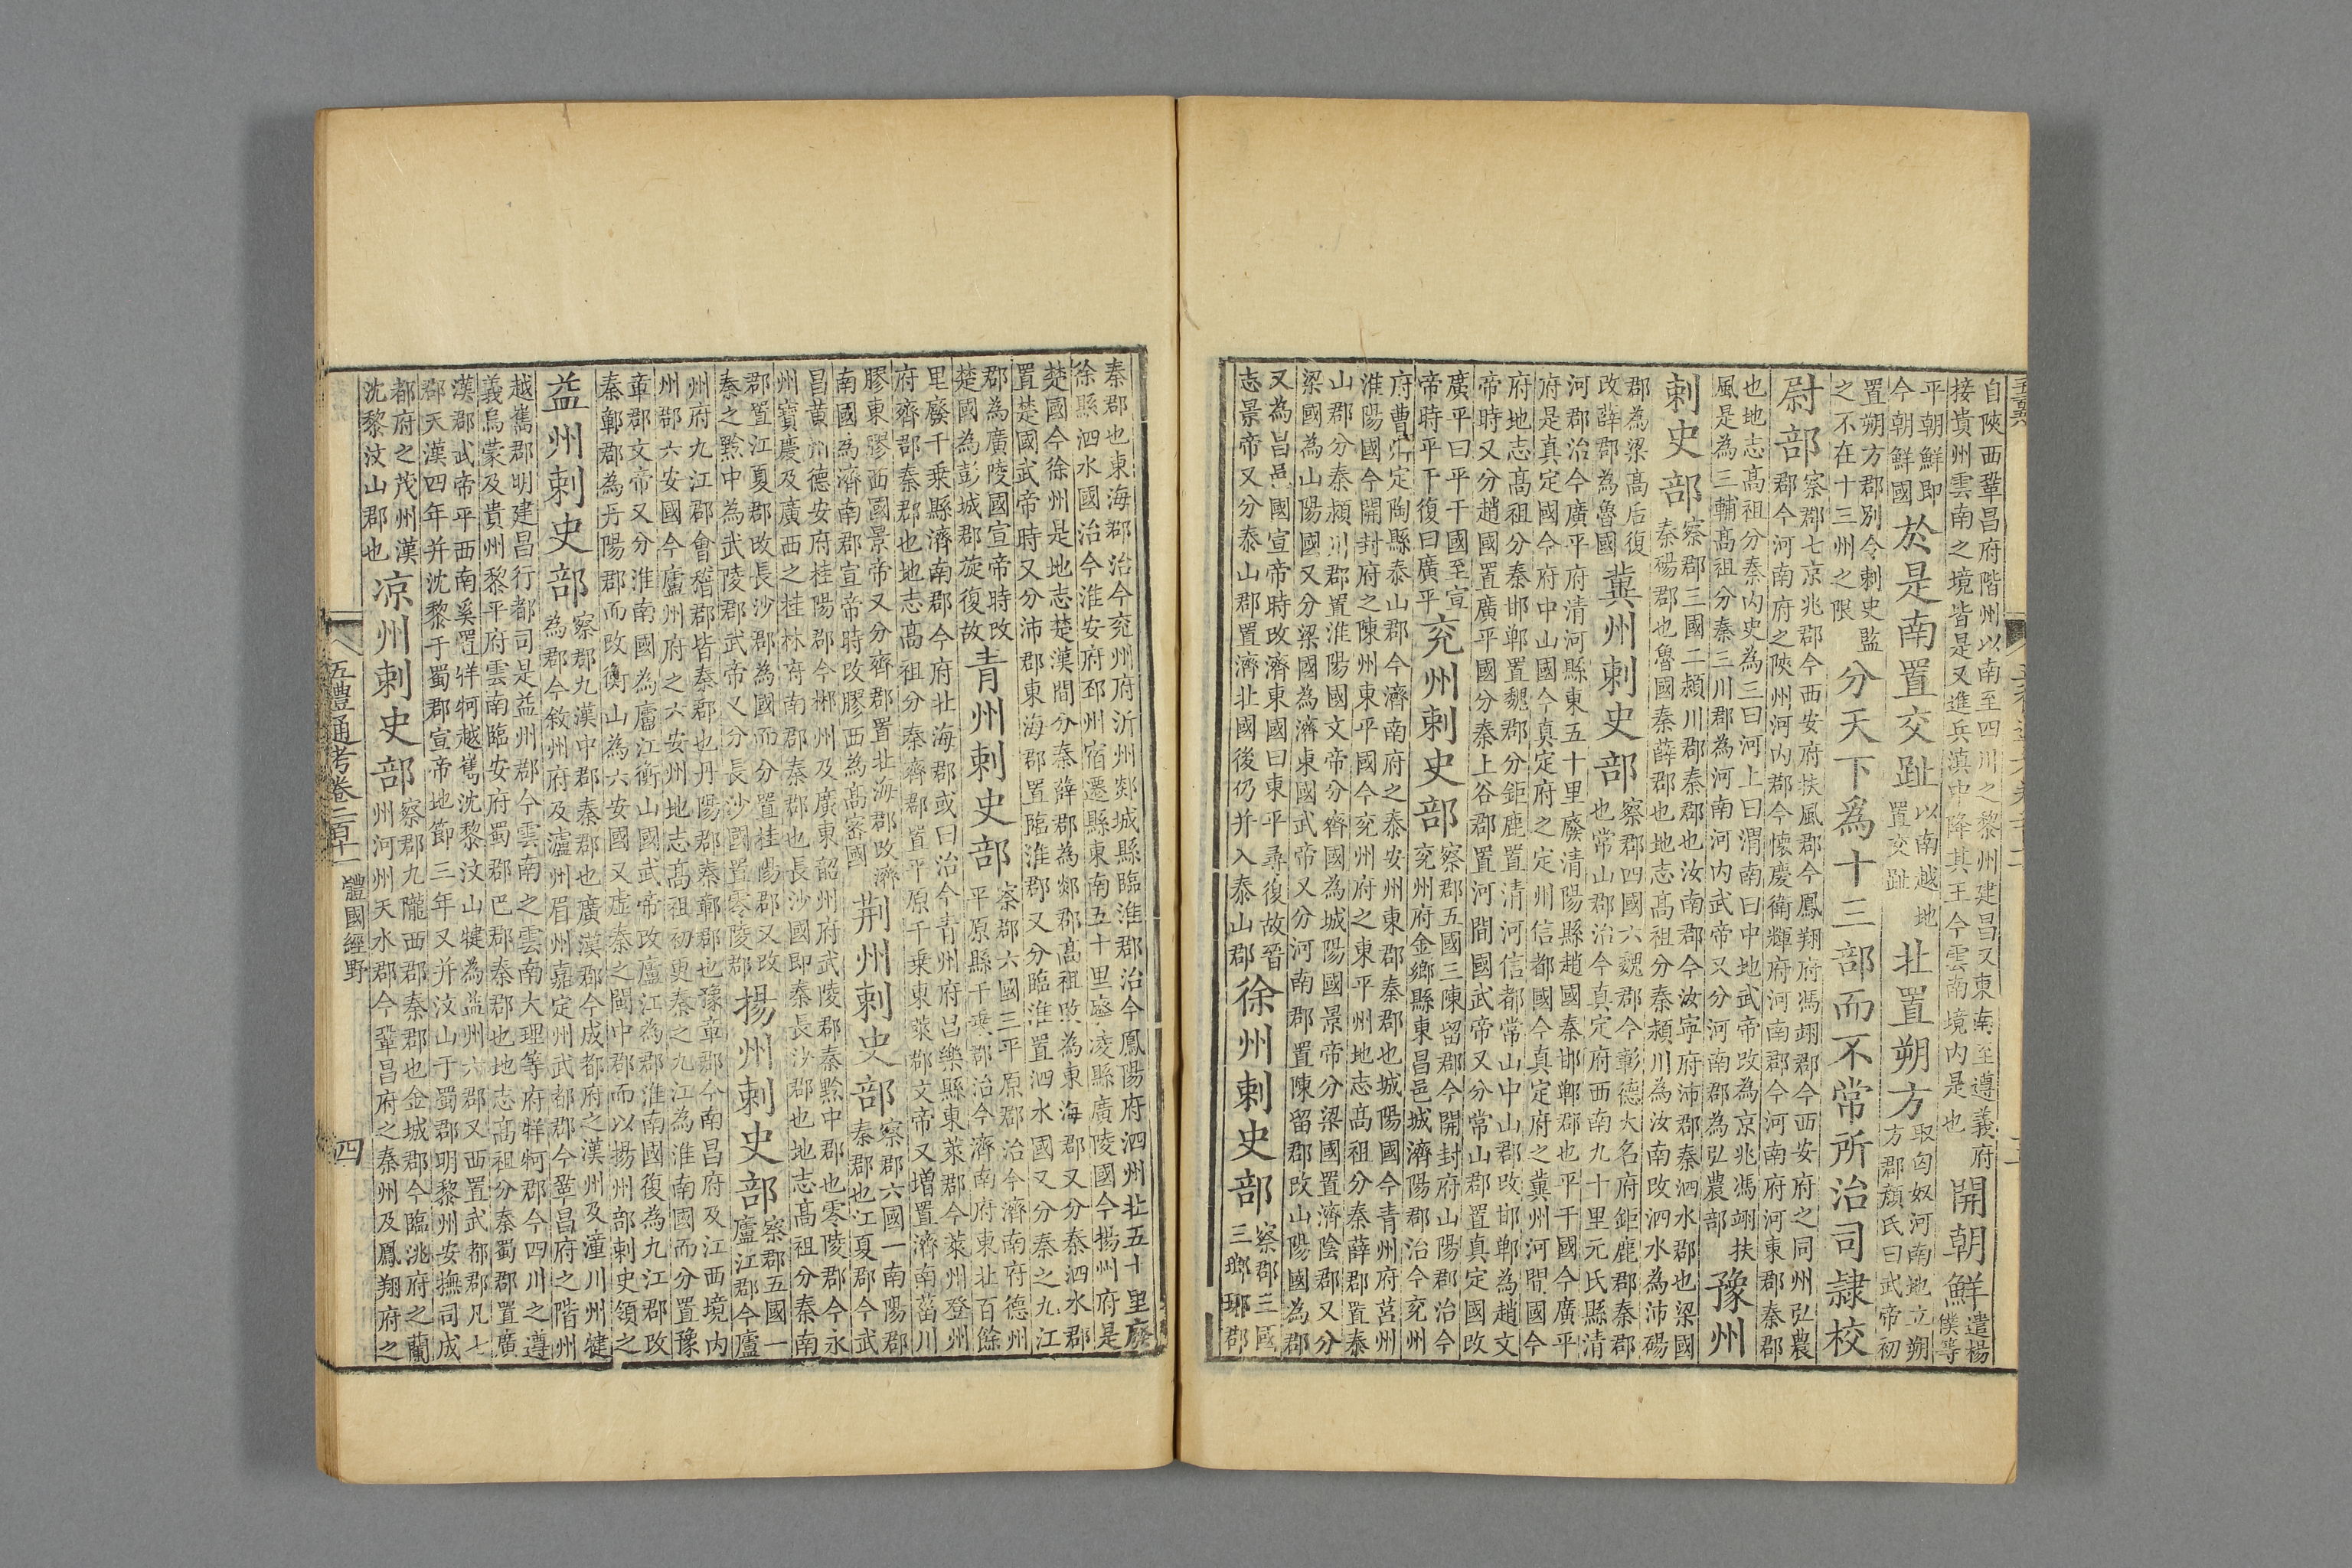 自陜西鞏昌府階州以南至四川之黎州建昌又東南至遵義府
接貴州雲南之境皆是又進兵滇中降其王今雲南境内是也
開朝鮮
遣楊
僕等
平朝鮮即
今朝鮮國
於是南置交趾
以南越地
置交趾
北置朔方
取匈奴河南地立朔
方郡顏氏曰武帝初
置朔方郡別令刺史監
之不在十三州之限
分天下爲十三部而不常所治司隷校
尉部
察郡七京兆郡今西安府扶風郡今鳳翔府馮翊郡今西安府之同州弘農
郡今河南府之陜州河内郡今懷慶衛輝府河南郡今河南府河東郡秦郡
也地志髙祖分秦内史為三曰河上曰渭南曰中地武帝改為京兆馮翊扶
風是為三輔髙祖分秦三川郡為河南河内武帝又分河南郡為弘農部
豫州
刺史部
察郡三國二頴川郡秦郡也汝南郡今汝寕府沛郡秦泗水郡也梁國
秦碭郡也魯國秦薛郡也地志髙祖分秦頴川為汝南改泗水為沛碭
郡為梁髙后復
改薛郡為魯國
冀州刺史部
察郡四國六魏郡今彰德大名府鉅鹿郡秦郡
也常山郡治今真定府西南九十里元氏縣清
河郡治今廣平府清河縣東五十里廢清陽縣趙國秦邯鄲郡也平干國今廣平
府是真定國今府中山國今真定府之定州信都國今真定府之冀州河間國今
府地志髙祖分秦邯鄲置魏郡分鉅鹿置清河信都常山中山郡改邯鄲為趙文
帝時又分趙國置廣平國分秦上谷郡置河間國武帝又分常山郡置真定國改
廣平曰平干國至宣
帝時平干復曰廣平
兖州刺史部
察郡五國三陳留郡今開封府山陽郡治今
兖州府金鄉縣東昌邑城濟陽郡治今兖州
府曹州定陶縣泰山郡今濟南府之泰安州東郡秦郡也城陽國今青州府莒州
淮陽國今開封府之陳州東平國今兖州府之東平州地志髙祖分秦薛郡置泰
山郡分秦頴川郡置淮陽國文帝分齊國為城陽國景帝分梁國置濟隂郡又分
梁國為山陽國又分梁國為濟東國武帝又分河南郡置陳留郡改山陽國為郡
又為昌邑國宣帝時改濟東國曰東平尋復故晉
志景帝又分泰山郡置濟北國後仍并入泰山郡
徐州刺史部
察郡三國
三瑯琊郡
秦郡也東海郡治今兖州府沂州郯城縣臨淮郡治今鳳陽府泗州北五十里廢
徐縣泗水國治今淮安府邳州宿遷縣東南五十里廢凌縣廣陵國今揚州府是
楚國今徐州是地志楚漢間分秦薛郡為郯郡髙祖改為東海郡又分秦泗水郡
置楚國武帝時又分沛郡東海郡置臨淮郡又分臨淮置泗水國又分秦之九江
郡為廣陵國宣帝時改
楚國為彭城郡旋復故
青州刺史部
察郡六國三平原郡治今濟南府德州
平原縣千乗郡治今濟南府東北百餘
里廢千乗縣濟南郡今府北海郡或曰治今青州府昌樂縣東萊郡今萊州登州
府齊郡秦郡也地志髙祖分秦齊郡置平原千乗東萊郡文帝又増置濟南菑川
膠東膠西國景帝又分齊郡置北海郡改濟
南國為濟南郡宣帝時改膠西為髙密國
荆州刺史部
察郡六國一南陽郡
秦郡也江夏郡今武
昌黄州德安府桂陽郡今郴州及廣東韶州府武陵郡秦黔中郡也零陵郡今永
州寶慶及廣西之桂林府南郡秦郡也長沙國即秦長沙郡也地志髙祖分秦南
郡置江夏郡改長沙郡為國而分置桂陽郡又改
秦之黔中為武陵郡武帝又分長沙國置零陵郡
揚州刺史部
察郡五國一
廬江郡今廬
州府九江郡會稽郡皆秦郡也丹陽郡秦鄣郡也豫章郡今南昌府及江西境内
州郡六安國今廬州府之六安州地志髙祖初更秦之九江為淮南國而分置豫
章郡文帝又分淮南國為廬江衡山國武帝改廬江為郡淮南國復為九江郡改
秦鄣郡為丹陽郡而改衡山為六安國又虚秦之閩中郡而以揚州部刺史領之
益州刺史部
察郡九漢中郡秦郡也廣漢郡今成都府之漢州及潼川州犍
為郡今敘州府及瀘州眉州嘉定州武都郡今鞏昌府之階州
越嶲郡明建昌行都司是益州郡今雲南之雲南大理等府牂牁郡今四川之遵
義烏蒙及貴州黎平府雲南臨安府蜀郡巴郡秦郡也地志髙祖分秦蜀郡置廣
漢郡武帝平西南奚置牂牁越嶲沈黎汶山犍為益州六郡又西置武都郡凡七
郡天漢四年并沈黎于蜀郡宣帝地節三年又并汶山于蜀郡明黎州安撫司成
都府之茂州漢
沈黎汶山郡也
凉州刺史部
察郡九隴西郡秦郡也金城郡今臨洮府之蘭
州河州天水郡今鞏昌府之秦州及鳳翔府之
五禮通考卷二百十一
體國經野
四